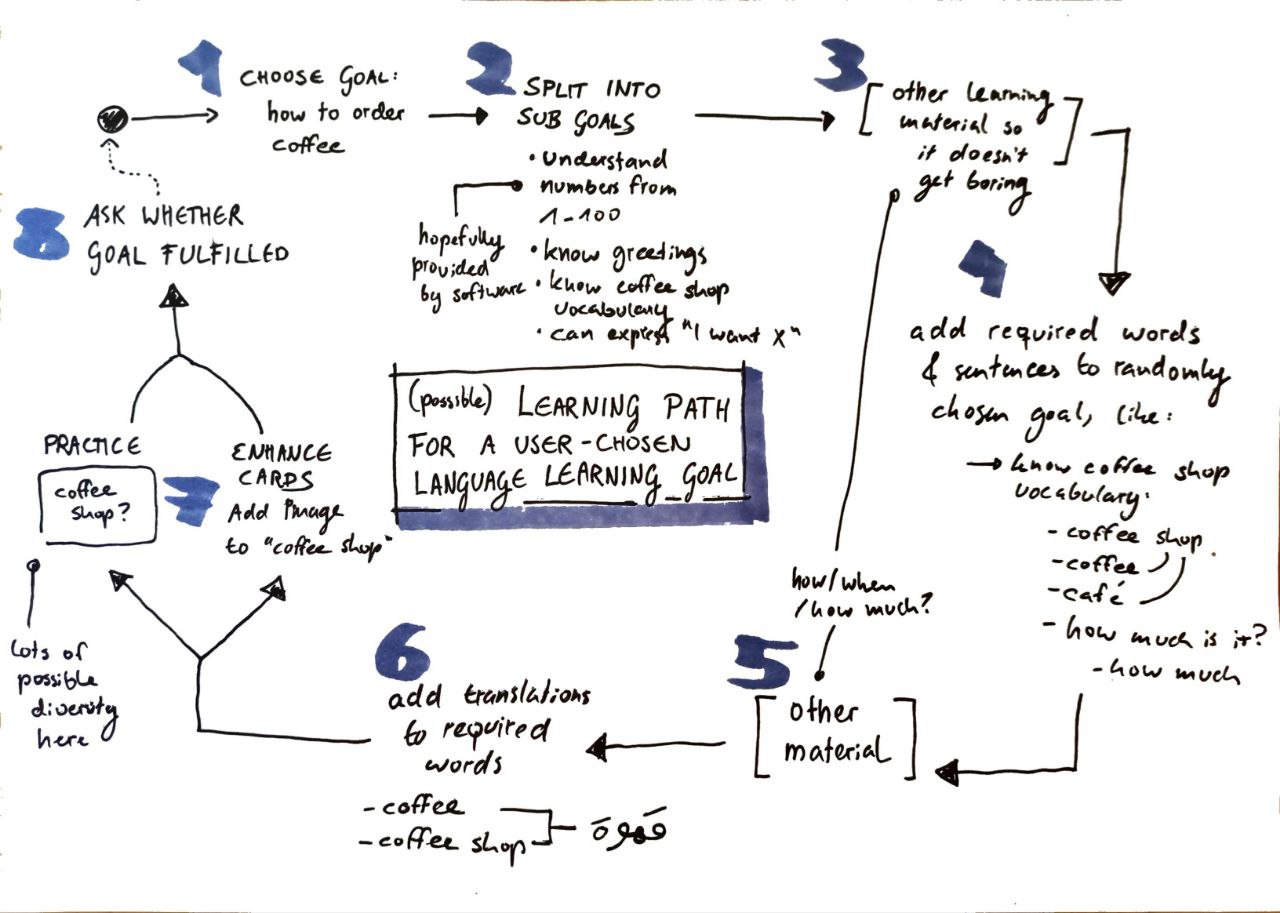 1
CHOOSE GOAL:
how to order
coffee
2
SPLIT INTO
SUB GOALS
• understand
numbers from
1-100
• know greetings
• know coffee shop
vocabulary
• can express "I want X"
hopefully
provided
by software
3
[other learning
material so
it doesn't
get boring]
4
add required words
& sentences to randomly
chosen goal, like:
→ know coffee shop
vocabulary:
- coffee shop
- coffee
- café
- how much is it?
- how much
how/when
/how much?
5
[other
material]
6
add translations
to required
words
- coffee
- coffee shop
قهوة
7
PRACTICE
coffee
shop?
Lots of
possible
diversity
here
ENHANCE
CARDS
Add Image
to "coffee shop"
8
ASK WHETHER
GOAL FULFILLED
(possible) LEARNING PATH
FOR A USER-CHOSEN
LANGUAGE LEARNING GOAL